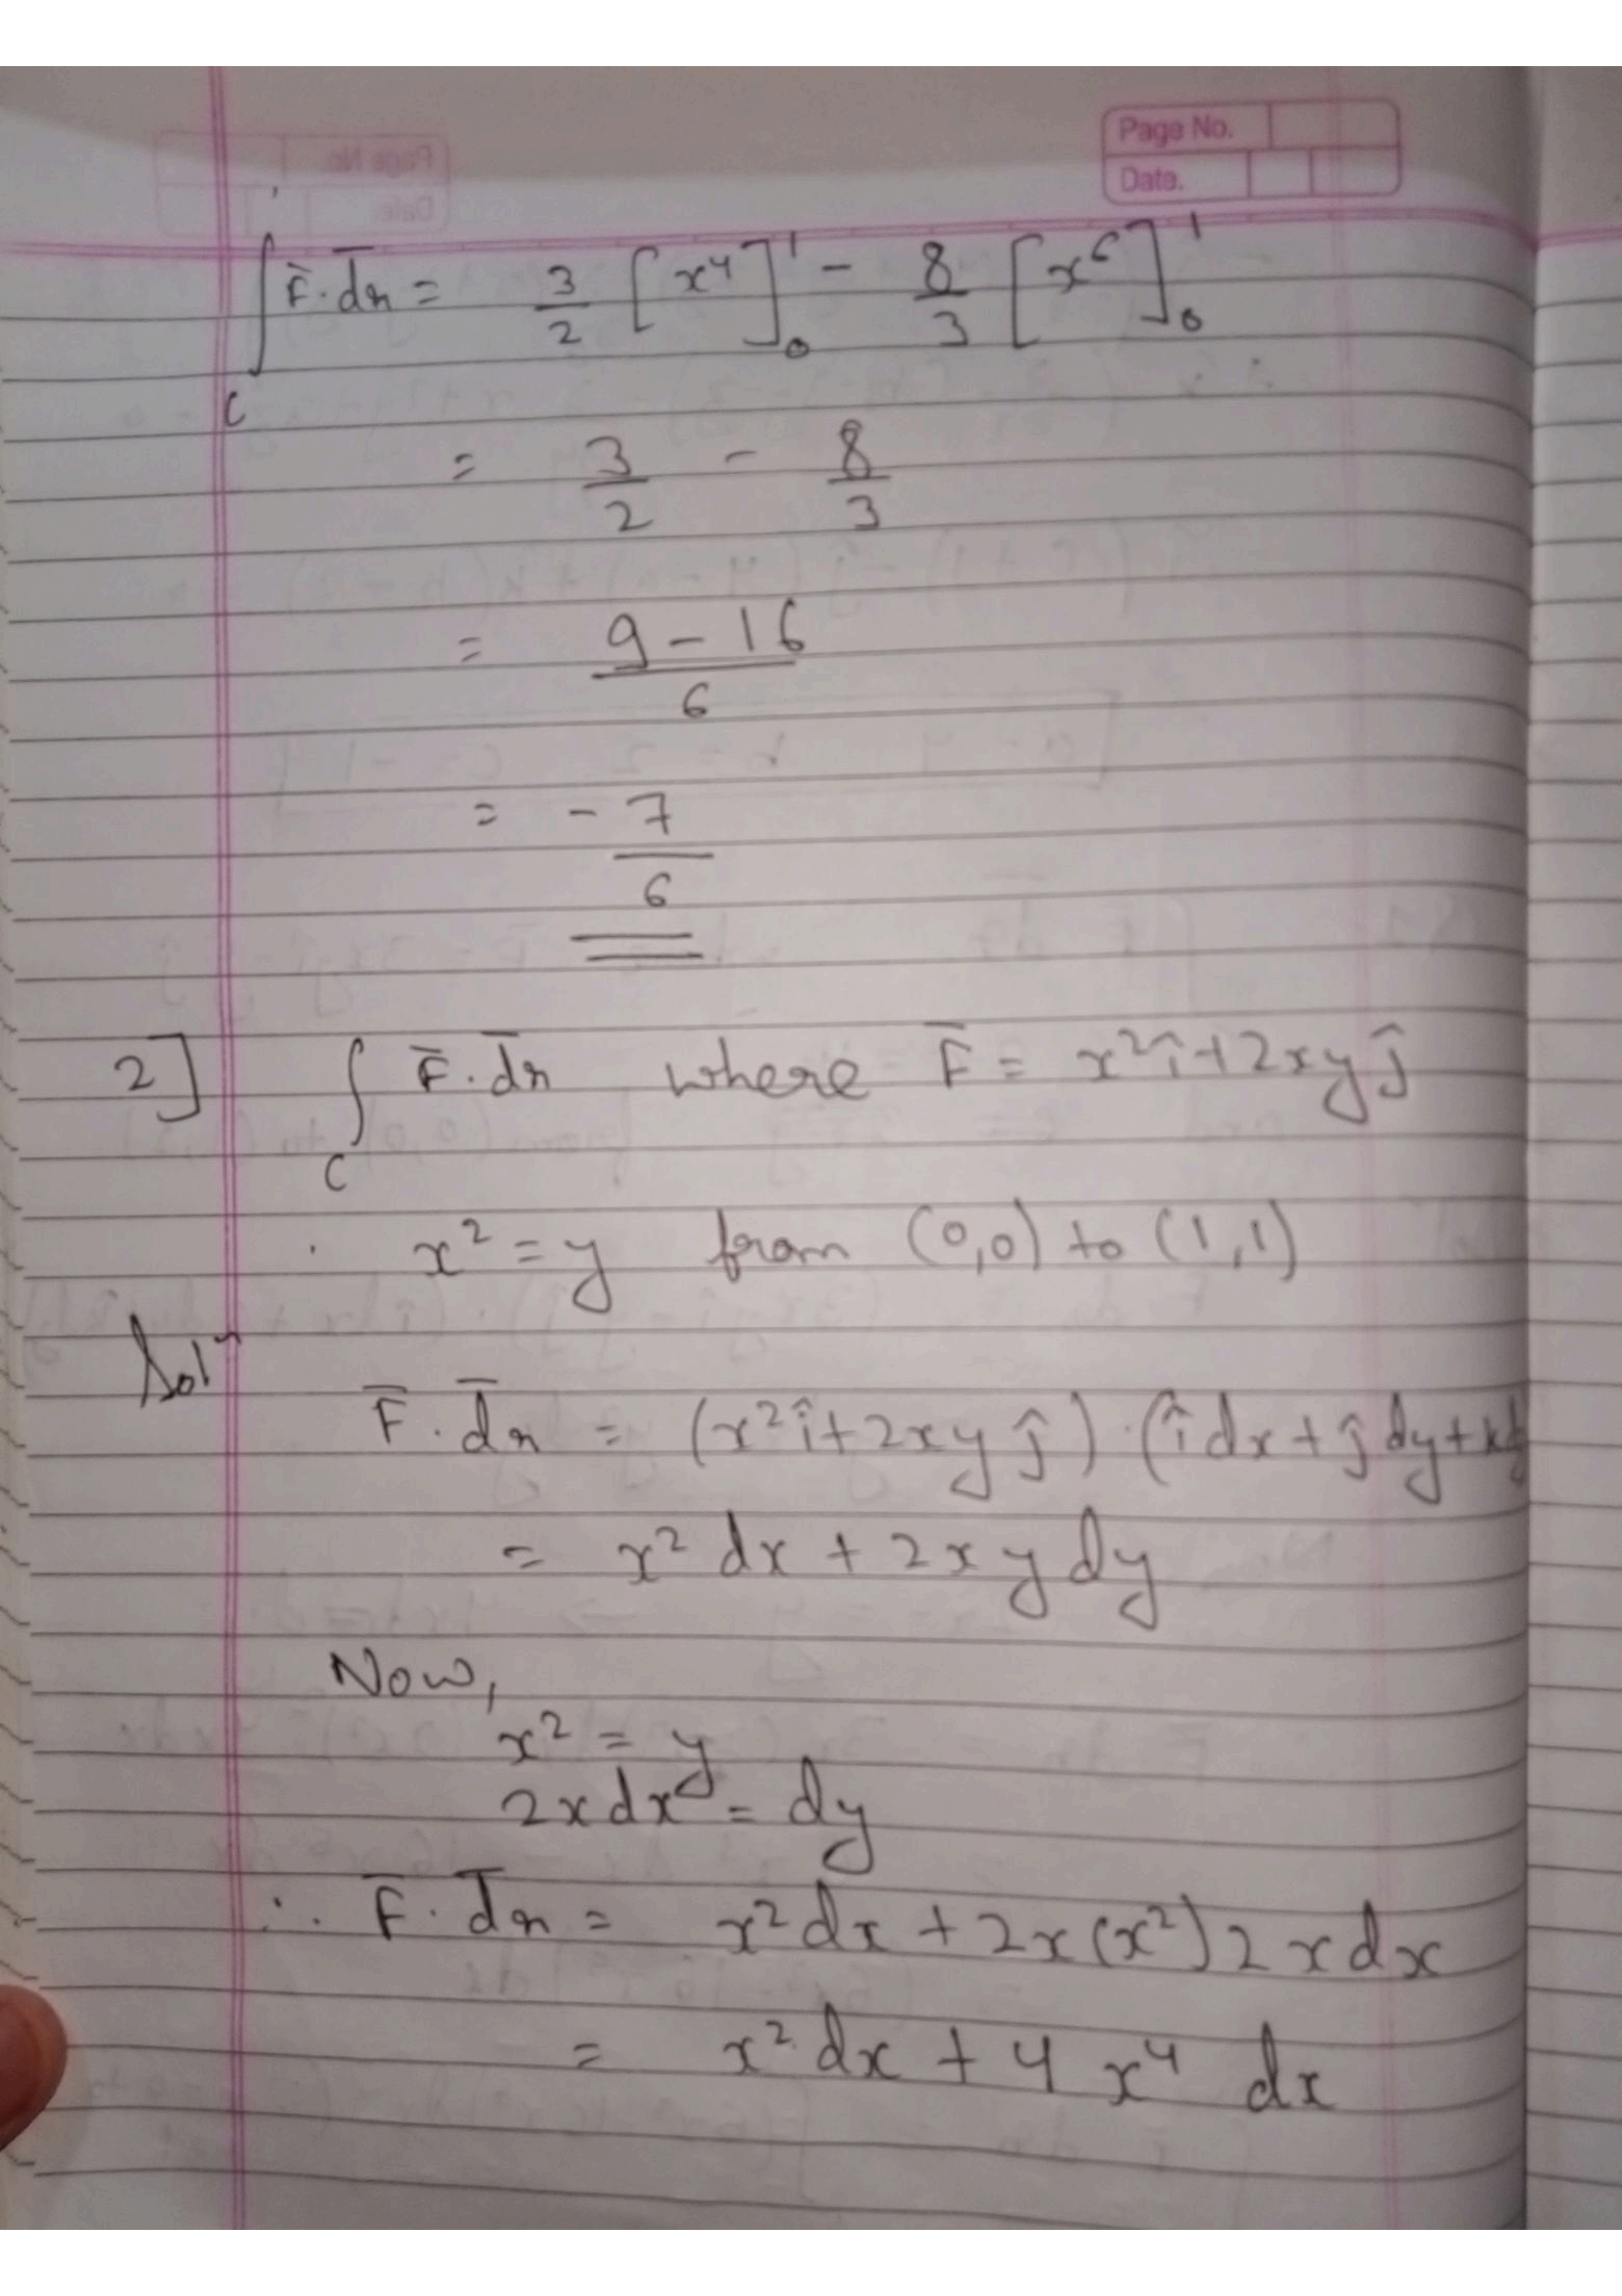 Page No.
Date.
∫ F̄.d̄r = 3/2 [x⁴]₀¹ - 8/3 [x⁶]₀¹
C
= 3/2 - 8/3
= 9-16/6
= -7/6
2] ∫ F̄.d̄r where F̄ = x²î+2xyĵ
C
x² = y from (0,0) to (1,1)
Solⁿ
F̄.d̄r = (x²î+2xyĵ).(îdx+ĵdy+k
= x² dx + 2xy dy
Now,
x² = y
2x dx = dy
∴ F̄.d̄r = x²dx + 2x(x²)2xdx
= x² dx + 4x⁴ dx